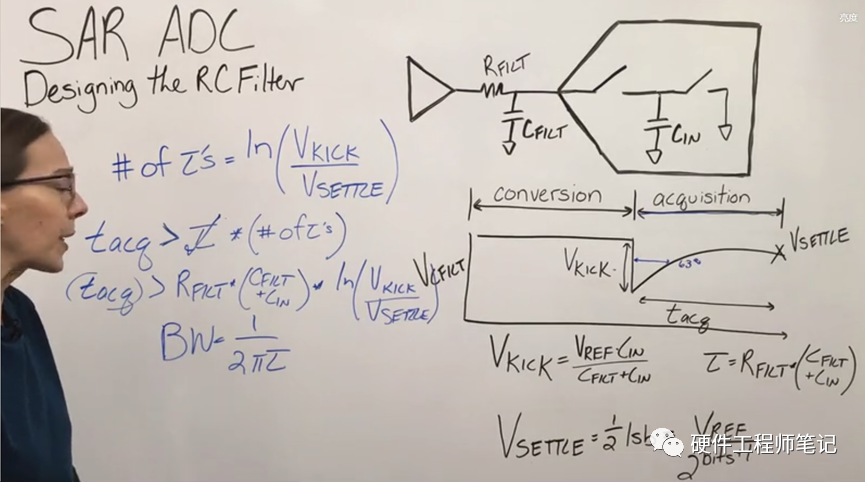 亮度
SAR ADC
Designing the RC Filter
# of τ's = ln(VKICK/VSETTLE)
tacq > τ * (# of τ's)
(tacq) > RFILT * (CFILT + CIN) * ln(VKICK/VSETTLE)
BW = 1/2πτ
RFILT
CFILT
CIN
conversion
acquisition
VCFILT
VKICK
63%
VSETTLE
tacq
VKICK = VREF·CIN/CFILT+CIN
τ = RFILT * (CFILT + CIN)
VSETTLE = 1/2 lsb VREF
2bits+1
硬件工程师笔记